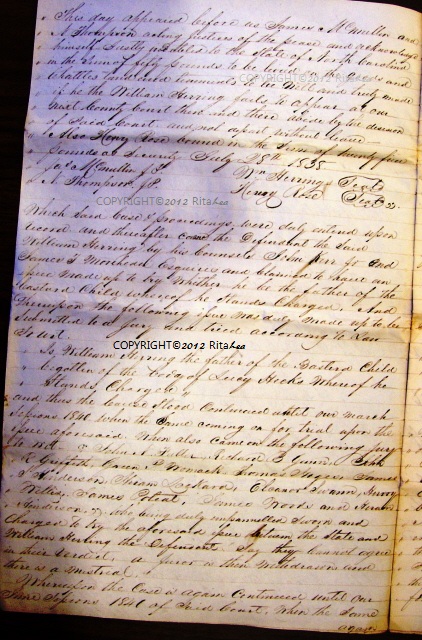 This day appeared before us James McMullen and
A Thompson acting Justices of the Peace and acknowledged
himself Justly indebted to the State of North Carolina
in the sum of fifty pounds to be levied
COPYRIGHT©2012 RitaLea
Chattles Land and tenements to be Void and truly made
if he the William Herring fails to appear at our
next County Court then and there abide by the decision
of said Court and not depart without leave
Also Henry Rose bound in the Sum of twenty five
pounds as Security July 25th 1835
Jas McMullen J.P. Wm Herring Seal
A. Thompson J.P. Henry Rose Seal
COPYRIGHT©2012 RitaLea
Which said Case & proceedings were duly entered upon
record and thereafter came the Defendant the said
William Herring by his Counsels John Kerr Jr and
James T Morehead Esquires and claimed to have an
issue made up to try Whether he be the father of the
Bastard Child whereof he Stands Charged. And
Thereupon the following issue was duly made up to be
submitted to a Jury and tried according to Law
To wit.
COPYRIGHT©2012 RitaLea
Is William Herring the father of the Bastard Child
begotten of the body of Hooks Whereof he
Stands Charged
and thus the cause stood Continued until our March
Sessions 1840 when the Same coming on for trial upon the
issue aforesaid. When also came the following jury
to wit. John A. Richard Gunn,
Griffith, Green Womack, Thomas James
Anderson, Hiram Eleanor Swann,
Willis, James Poteat, James Woods and
Anderson, who being duly empannelled Sworn and
Charged to try the aforesaid issue between the State and
William Herring the Defendant. Say they cannot agree
in their Verdict, a juror is then Withdrawn and
there is a mistrial.
Whereupon the Case is again Continued until our
June Sessions 1840 of said Court, When the Same
again